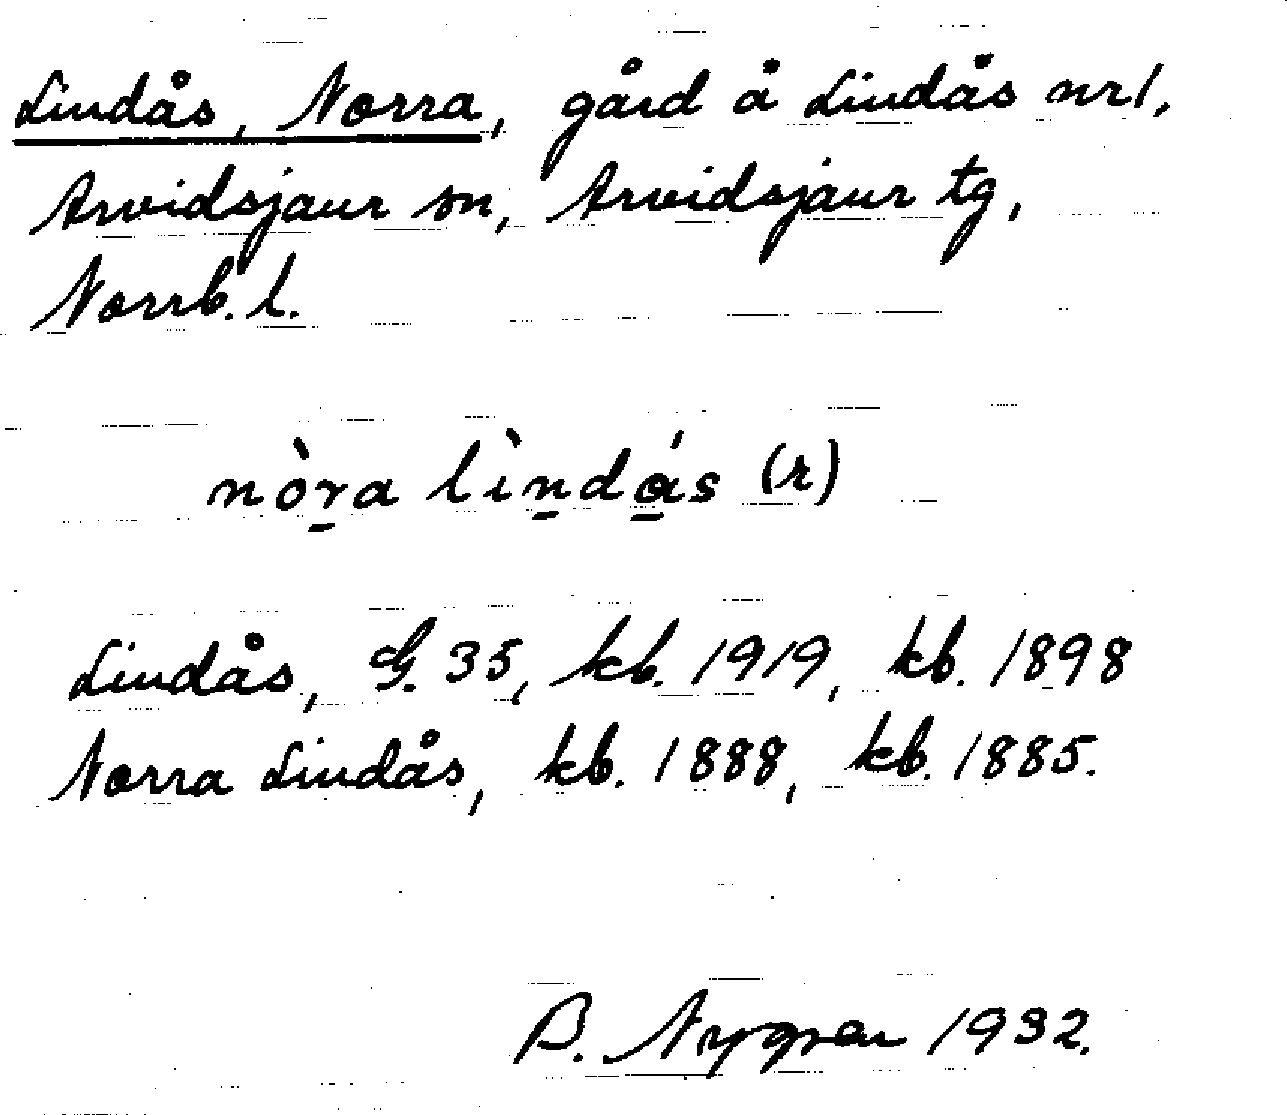 Lindås, Norra, gård å Lindås nr 1,
Arvidsjaur sn, Arvidsjaur tg,
Norrb. l.
nò̱ra lìṉdǻ̱s (r)
Lindås, G. 35, kb. 1919, kb. 1898
Norra Lindås, kb. 1888, kb. 1885.
B. Nygren 1932.